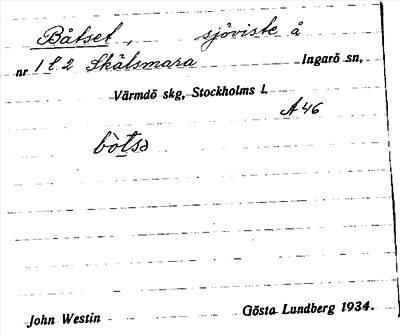 Båtset, sjöviste å
nr 1 o. 2 Skälsmara Ingarö sn,
Värmdö skg, Stockholms l.
A 46
John Westin Gösta Lundberg 1934.